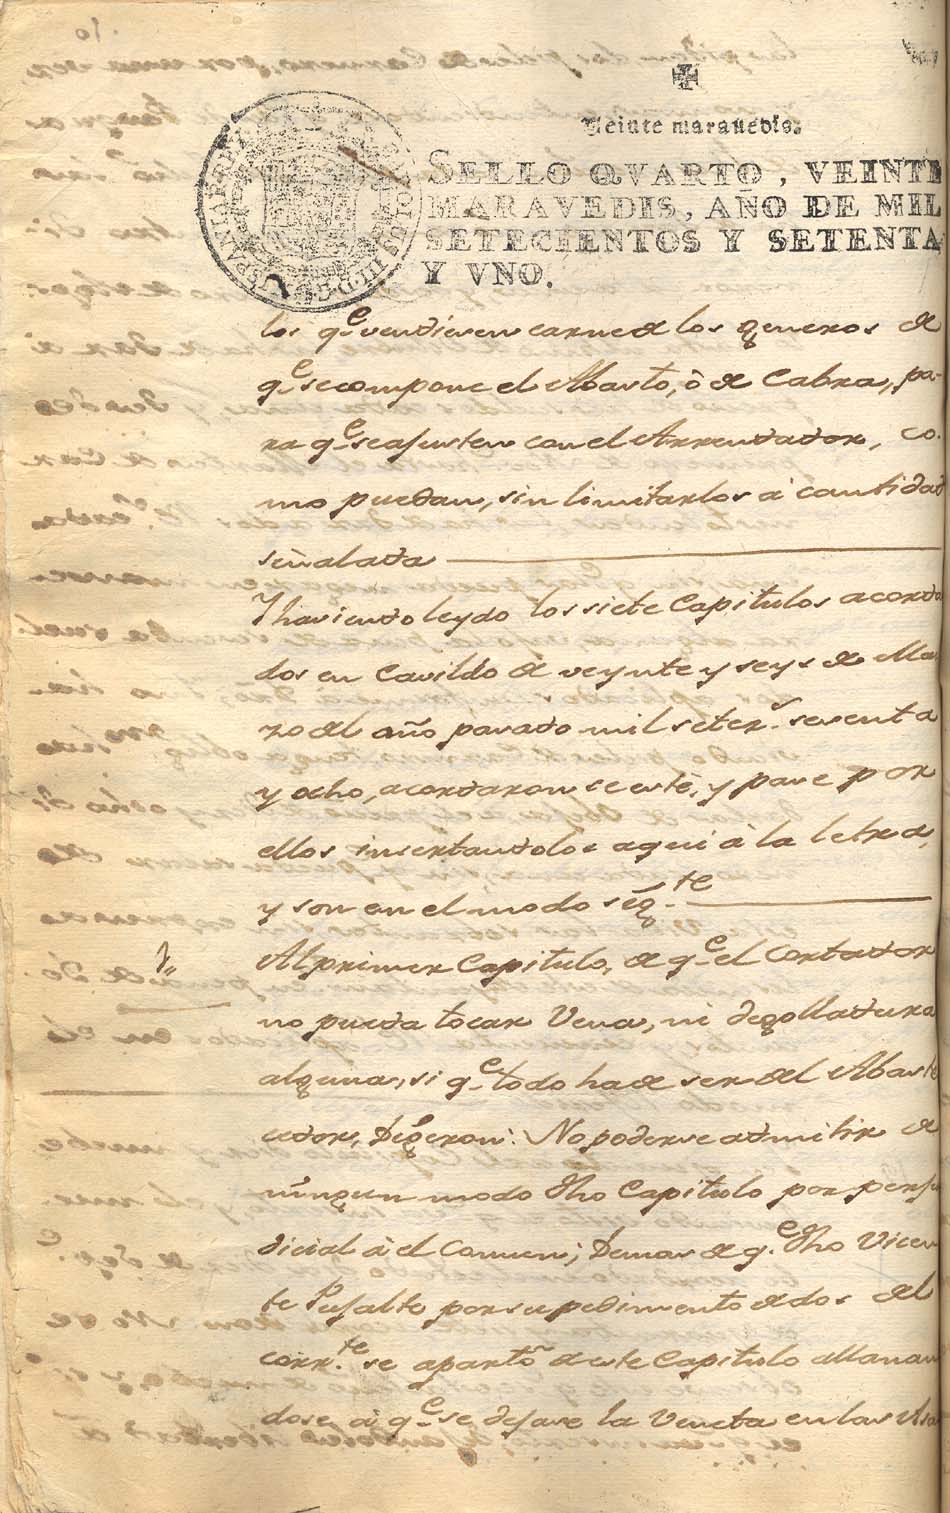 Veinte maravedis.
SELLO QVARTO, VEINTE
MARAVEDIS, AÑO DE MIL
SETECIENTOS Y SETENTA
Y VNO.
los qe vendiesen carne de los generos de
qe se compone el Abasto, ò de Cabra, pa-
ra qe se ajusten con el Arrendador, co-
mo puedan, sin limitarlos à cantidad
señalada
Y haviendo leydo los siete Capitulos acorda
dos en Cavildo de veynte y seys de Mar
zo del año pasado mil setezs. sesenta
y ocho, acordaron se esté, y pase por
ellos insertandolos aqui à la letra,
y son en el modo sigte
1,, Al primer Capitulo, de qe el Cortador
no pueda tocar Vena, ni degolladura
alguna, si qe todo ha de ser del Abaste
cedor, Dijeron: No poderse admitir de
ningun modo dho Capitulo por perju
dicial à el Comun; Demas de qe dho Vicen
te por su pedimento de dos del
corrte se apartó de este Capitulo allanan
dose à qe se dejase la Veneta en las